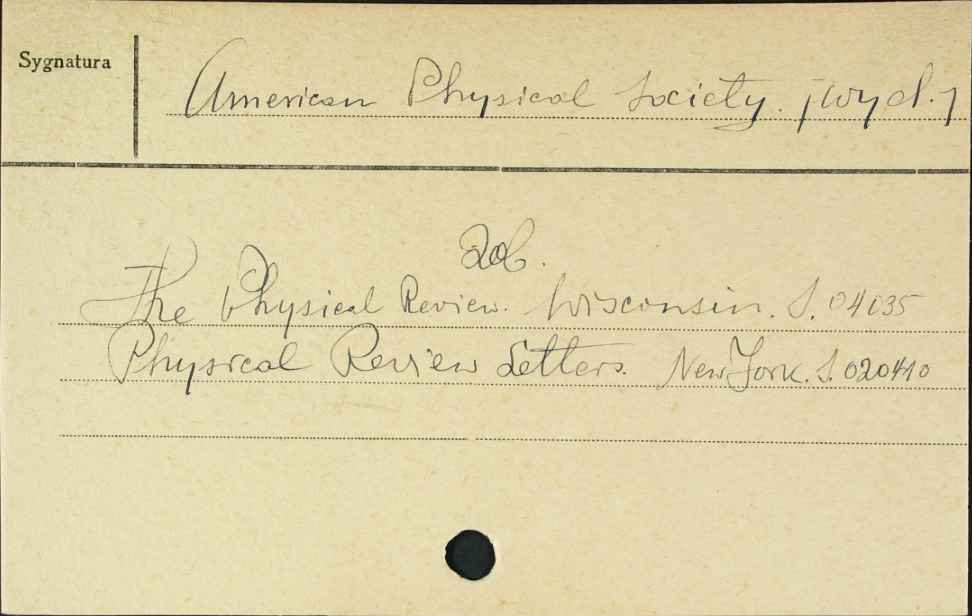 Sygnatura
American Physical Society. /wyd./
Zob.
The Physical Review. Wisconsin. S. 04035
Physical Review Letters. New York. S. 020410